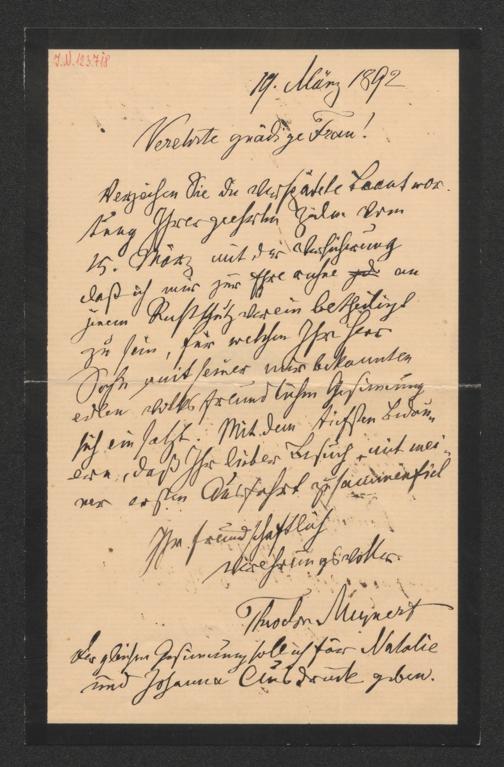 J.N. 123.718
19. März 1892
Verehrte gnädige Frau!
Verzeihen Sie die verspätete Beantwor-
tung Ihrer geehrten Zeilen vom
15. März mit der Versicherung
daß ich mir zur Ehre rechne an
jenem Rechtsschutzverein betheiligt
zu sein, für welchen Ihr Herr
Sohn mit seiner mir bekannten
edlen volksfreundlichen Gesinnung
sich einsetzt. Mit dem tiefsten Bedau-
ern, daß Ihr lieber Besuch mit mei-
ner ersten Ausfahrt zusammenfiel
Ihr freundschaftlich
verehrungsvoller
Theodor Meynert
der gleichen Gesinnung soll ich für Natalie
und Johanna Ausdruck geben.